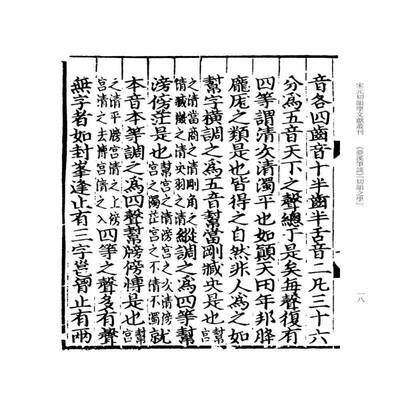 宋元切韻學文獻叢刊　《夢溪筆談》「切韻之學」
一八
音各四齒音十半齒半舌音二凡三十六
分為五音天下之聲總于是矣每聲復有
四等謂清次清濁平也如顛天田年邦胮
龐厖之類是也皆得之自然非人為之如
幫字橫調之為五音幫當剛臧央是也幫宮
之清當商之清剛角之清臧徵之清央羽之清縱調之為四等幫
滂傍茫是也幫宮之清滂宮之次清傍宮之濁茫宮之不清不濁就
本音本等調之為四聲幫牓傍博是也幫宮
之清平牓宮之清上傍宮清之去博宮清之入四等之聲多有聲
無字者如封峯逢止有三字邕胷止有兩